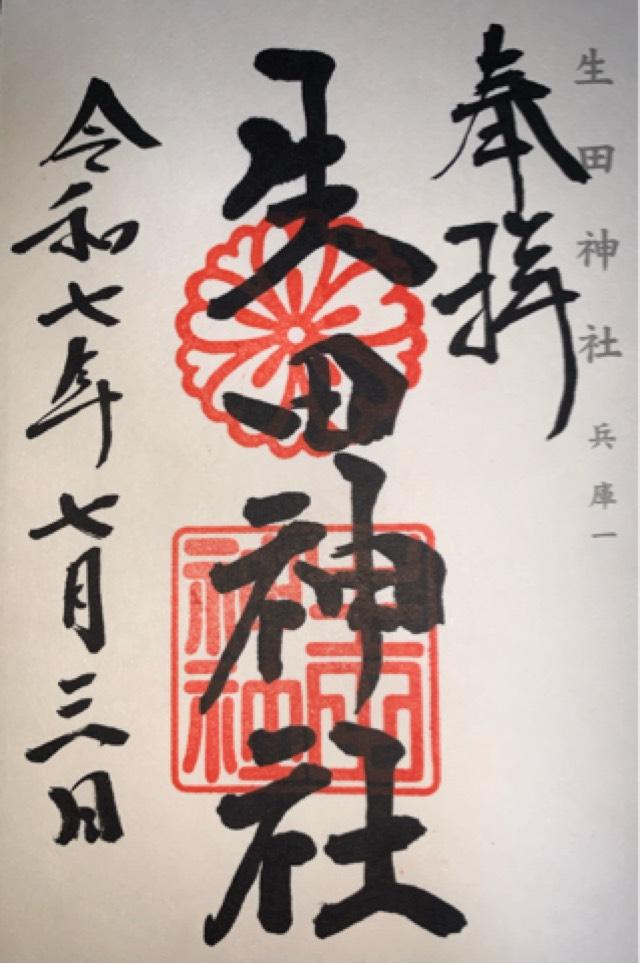 生田神社 兵庫一
奉拝
生田神社
生田神社
令和七年七月三日